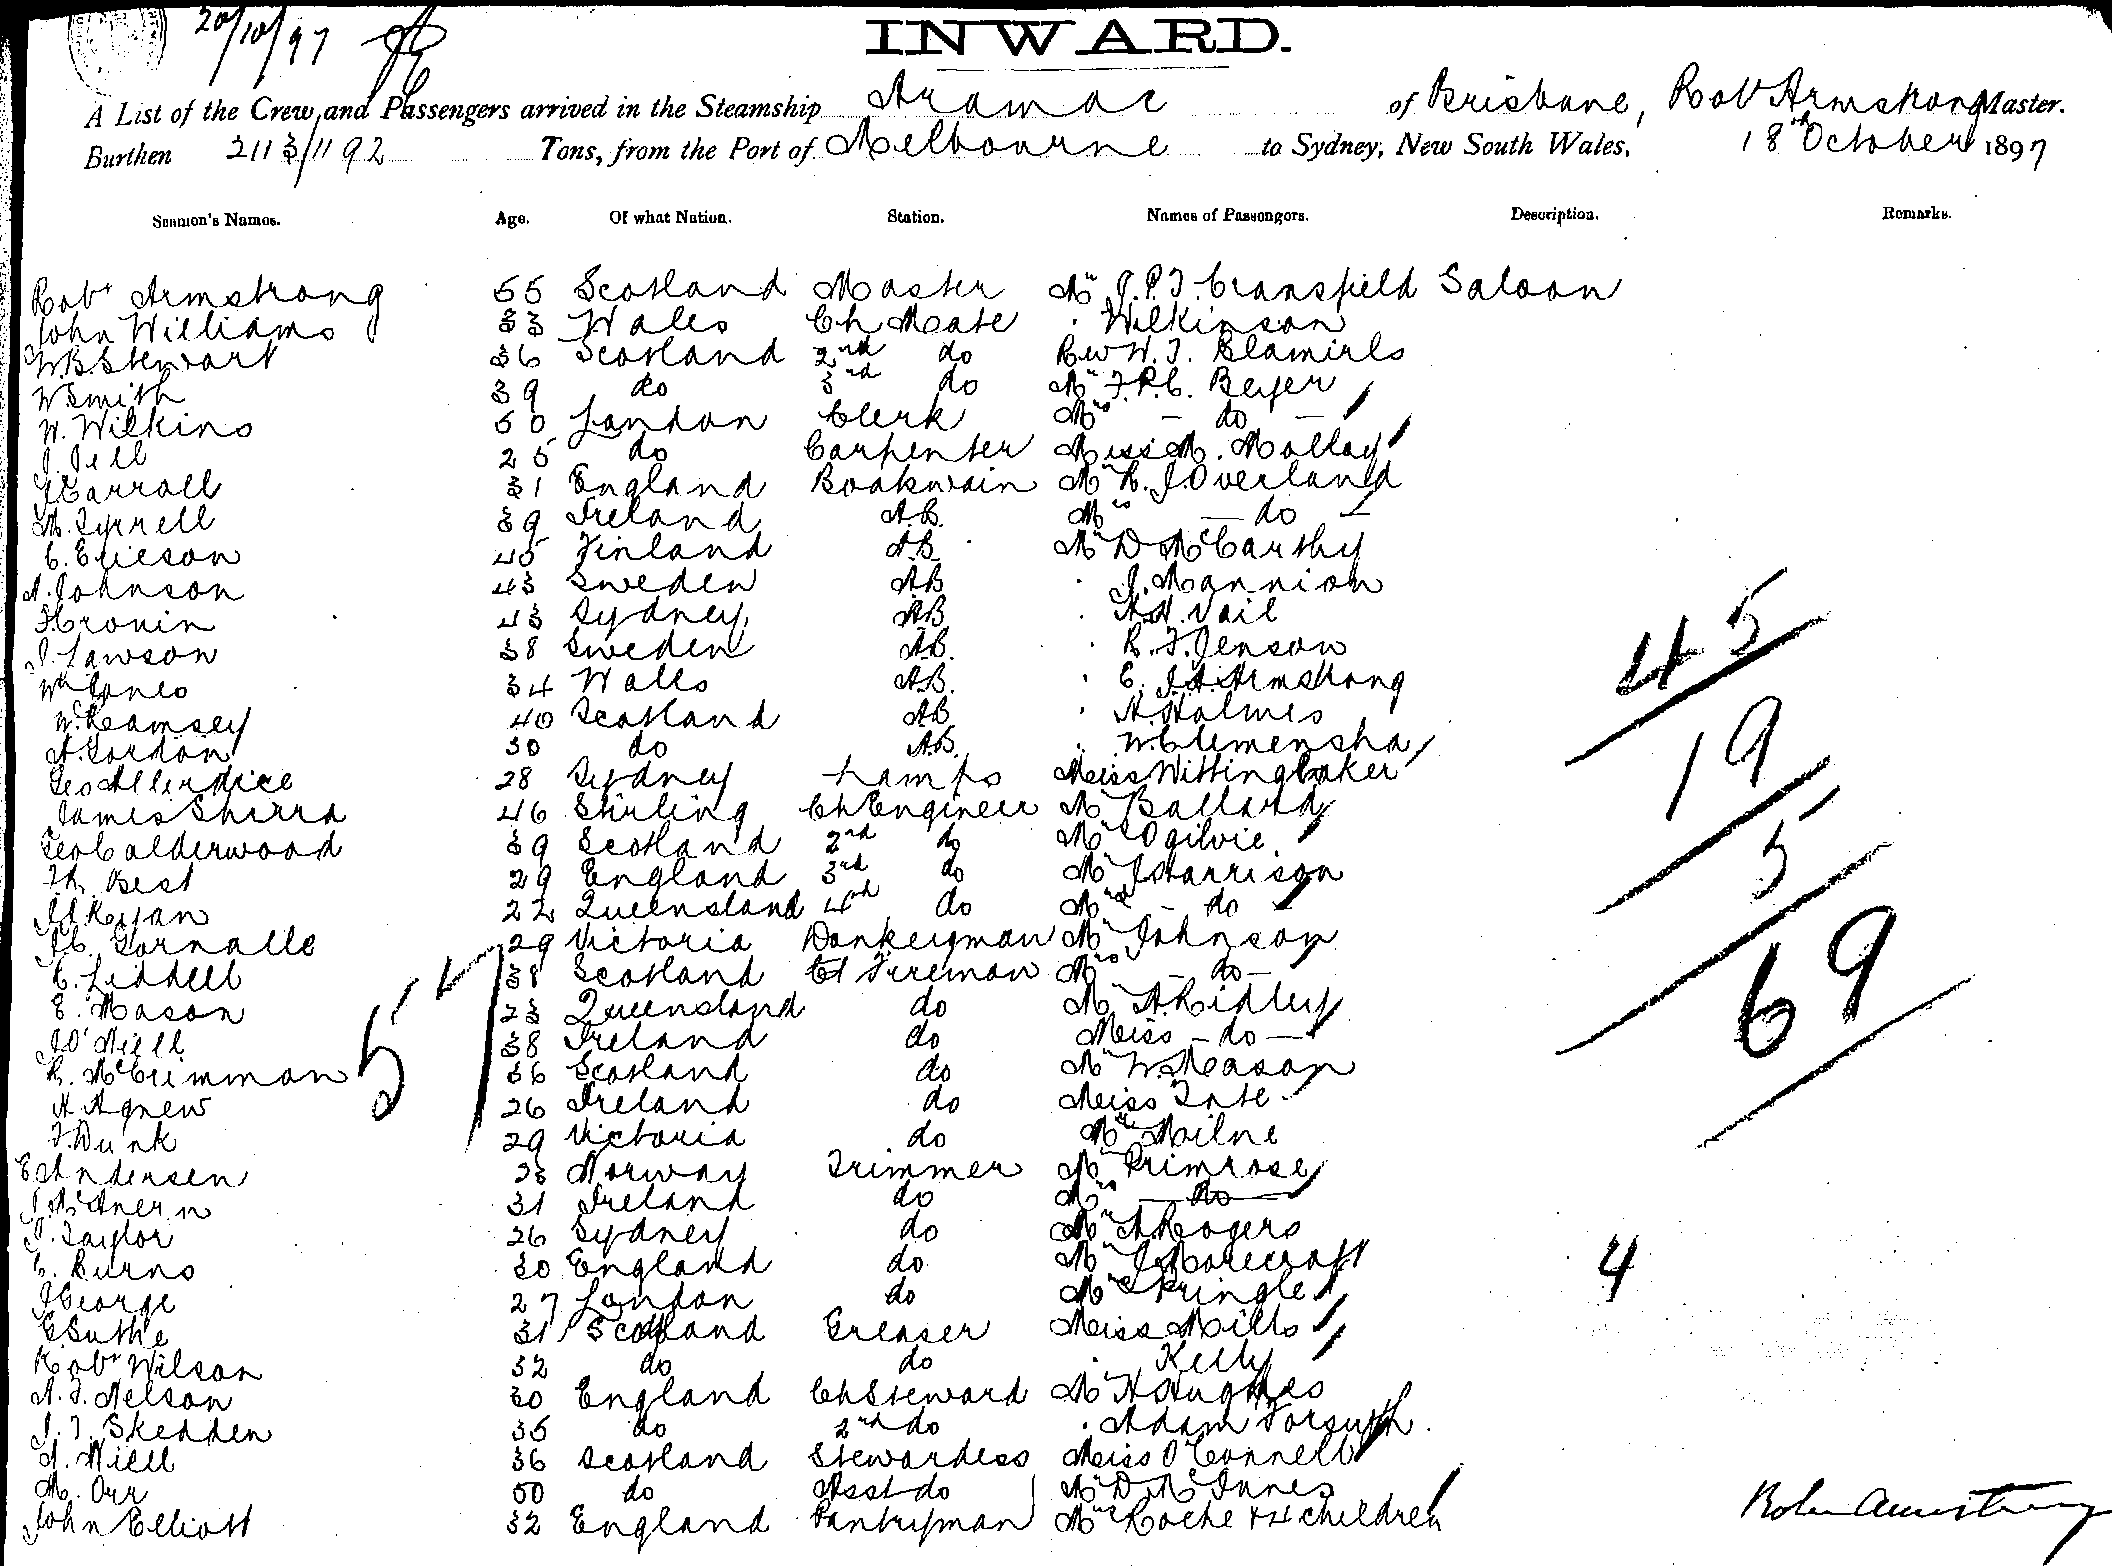 20/10/97
INWARD.
A List of the Crew and Passengers arrived in the Steamship Aramac of Brisbane, Robt Armstrong Master.
Burthen 2113/1192 Tons, from the Port of Melbourne to Sydney, New South Wales, 18th October 1897
Seamen's Names. Age. Of what Nation. Station. Names of Passengers. Description. Remarks.
Robt Armstrong 55 Scotland Master Mr J.P.T. Cransfield Saloon
John Williams 33 Wales Ch Mate " Wilkinson
W.B. Stewart 36 Scotland 2nd do Rev W.T. Blamires
W Smith 39 do 3rd do Mr F.P.C. Beyer
W. Wilkins 50 London Clerk Mrs - do -
J. Jell 25 do Carpenter Miss M. Molloy
J Carroll 31 England Boatswain Mr R.J. Overland
M. Tyrrell 39 Ireland A.B. Mrs - do -
C. Ericson 45 Finland A.B. Mr D McCarthy
A. Johnson 43 Sweden AB " J. Mannion
J. Cronin 43 Sydney AB " A.N. Vail
J. Lawson 38 Sweden A.B. " R.F. Jenson
Wm Jones 34 Wales A.B. " C.J.A. Armstrong
W. Ramsey 40 Scotland AB " A. Holmes
A. Gordon 30 do A.B. " W. Clemensha
Geo Allerdice 28 Sydney Lamps Miss Wittingbaker
James Shirra 46 Stirling Ch Engineer Mr Ballard
Geo Calderwood 39 Scotland 2nd do Mr Ogilvie
Th. Best 29 England 3rd do Mr J Harrison
J.J. Ryan 22 Queensland 4th do Mrs - do -
J.C. Gornalle 29 Victoria Donkeyman Mr Johnson
C. Liddell 38 Scotland Fireman Mrs - do -
E. Mason 23 Queensland do Mr A. Ridley
J O'Neill 38 Ireland do Miss - do -
R. McCrimmon 36 Scotland do Mr W. Meason
A Agnew 26 Ireland do Miss Tate
J. Dunk 29 Victoria do Mr Milne
E Andersen 23 Norway Trimmer Mr Primrose
J. McAnern 31 Ireland do Mrs - do -
J. Taylor 26 Sydney do Mr A Rogers
C. Burns 30 England do Mr J. Morecraft
J George 27 London do Mr Pringle
G Suthe 31 Scotland Greaser Miss Mills
Robt Wilson 32 do do " Kelly
A. T. Nelson 30 England Ch Steward Mr H Hughes
J. T. Skedden 35 do 2nd do " Adam Forsyth
A. Niell 36 Scotland Stewardess Miss O'Connell
M. Orr 50 do Asst do Mr D. McInnes
John Elliott 32 England Pantryman Mrs Roche & 4 children
45
19
5
69
5
4
Robt Armstrong